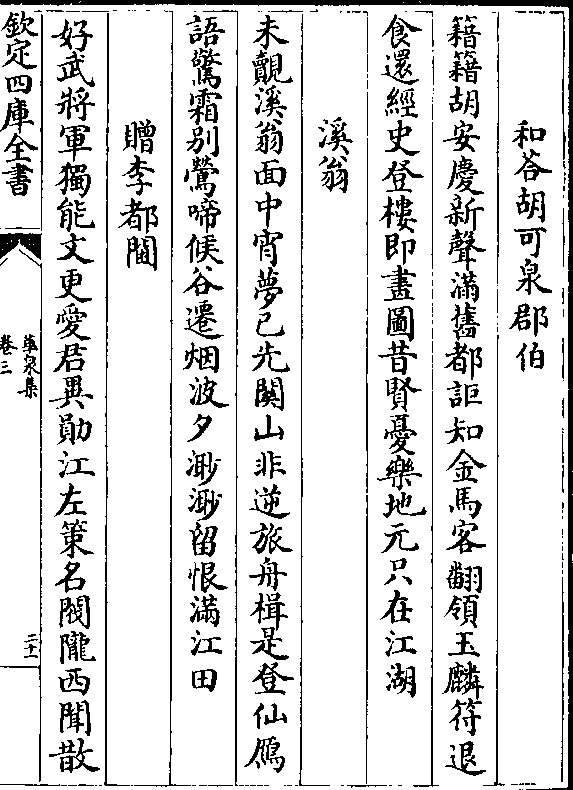 和答胡可泉郡伯
籍籍胡安慶新聲滿舊都詎知金馬客翻領玉麟符退
食還經史登樓即畫圖昔賢憂樂地元只在江湖
溪翁
未覿溪翁面中宵夢已先關山非逆旅舟楫是登仙鴈
語驚霜别鶯啼候谷遷烟波夕渺渺留恨滿江田
贈李都閫
好武將軍獨能文更愛君異勛江左策名閥隴西聞散
欽定四庫全書
華泉集
卷三
二十一